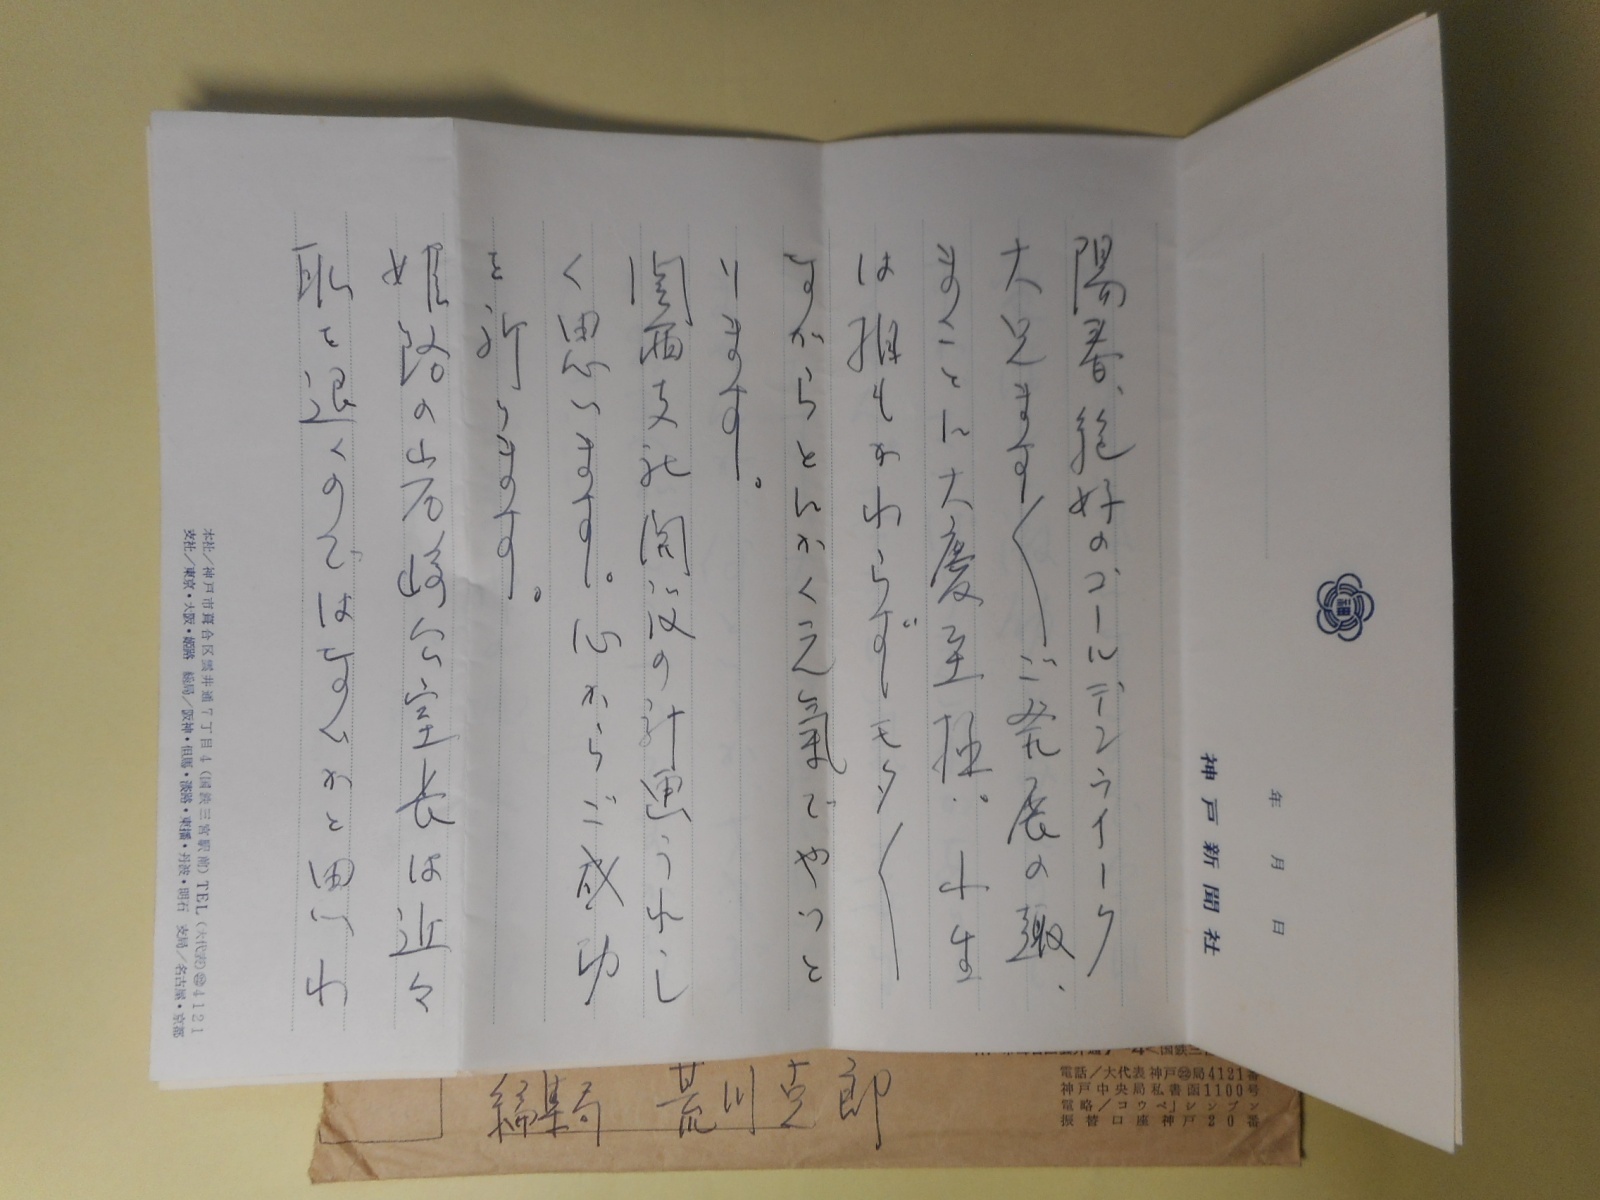 年　月　日
神戸新聞社
陽春、絶好のゴールデンウイーク
大兄ます〱ご発展の趣、
まことに大慶至極。小生
は相もかわらずモタ〱
ながらとにかく元氣でやっと
ります。
関西支社開設の計画うれし
く思います。心からご成功
を祈ります。
姫路の山名崎公室長は近々
職を退くのではないかと思われ
本社／神戸市葺合区雲井通7丁目4（国鉄三宮駅前）TEL（大代表）㉒4121
支社／東京・大阪・姫路　総局／阪神・但馬・淡路・東播・丹波・明石　支局／名古屋・京都
編集局　荒川克郎
電話／大代表 神戸㉒局4121番
神戸中央局私書函1100号
電略／コウベ」シンブン
振替口座神戸20番